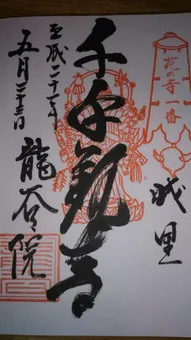 花の寺一番
城里
千手観音
平成二十
五月二十三日
龍谷院